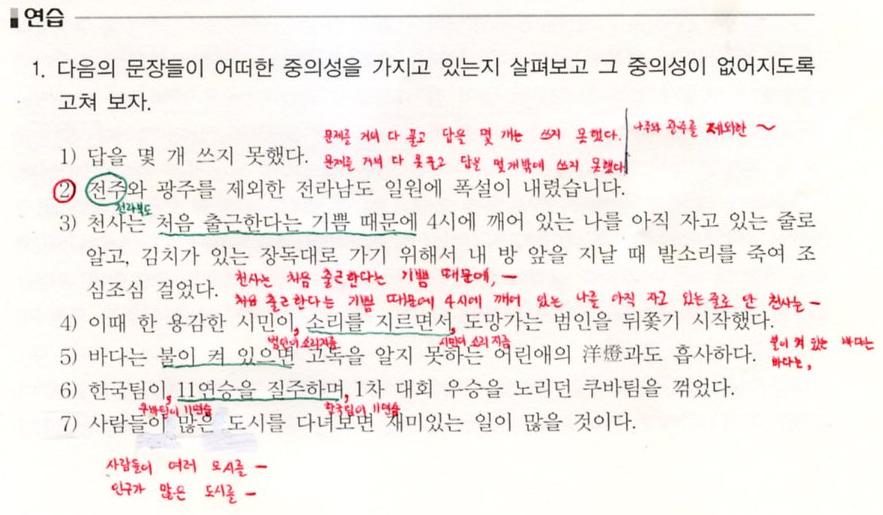 연습
1. 다음의 문장들이 어떠한 중의성을 가지고 있는지 살펴보고 그 중의성이 없어지도록
고쳐 보자.
문제를 거녀 다 풀고 답을 몇 개는 쓰지 못했다. 나주와 광주를 제외한 ~
1) 답을 몇 개 쓰지 못했다.
문제를 거녀 다 못풀고 답을 몇개밖에 쓰지 못했다
2) 전주와 광주를 제외한 전라남도 일원에 폭설이 내렸습니다.
전라북도
3) 천사는 처음 출근한다는 기쁨 때문에 4시에 깨어 있는 나를 아직 자고 있는 줄로
알고, 김치가 있는 장독대로 가기 위해서 내 방 앞을 지날 때 발소리를 죽여 조
심조심 걸었다.
천사는 처음 출근한다는 기쁨 때문에, ~
처음 출근한다는 기쁨 때문에 4시에 깨어 있는 나를 아직 자고 있는줄로 단 천사는 ~
4) 이때 한 용감한 시민이, 소리를 지르면서, 도망가는 범인을 뒤쫓기 시작했다.
범인이 소리지름 시민이 소리지름
5) 바다는 불이 켜 있으면 고독을 알지 못하는 어린애의 洋燈과도 흡사하다.
불이 켜 있는 바다는
바다는,
6) 한국팀이, 11연승을 질주하며, 1차 대회 우승을 노리던 쿠바팀을 꺾었다.
쿠바팀이 11연승 한국팀이 11연승
7) 사람들이 많은 도시를 다녀보면 재미있는 일이 많을 것이다.
사람들이 여러 도시를 ~
인구가 많은 도시를 ~